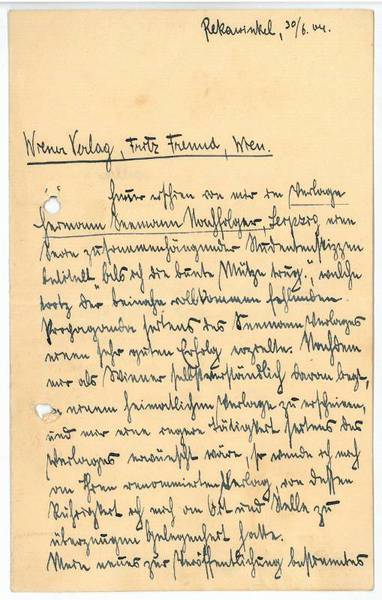 Rekawinkel, 30/6. 04.
Wiener Verlag, Fritz Freund, Wien.
Heuer erschien von mir im Verlage
Hermann Seemann Nachfolger, Leipzig, eine
Serie zusammenhängender Studentenskizzen
betitelt "Als ich die bunte Mütze trug.", welche
trotz der beinahe vollkommen fehlenden
Propaganda seitens des Seemann Verlages
einen sehr guten Erfolg erzielte. Nachdem
mir als Wiener selbstverständlich daran liegt,
in einem heimatlichen Verlage zu erscheinen,
und mir eine regere Tätigkeit seitens des
Verlages erwünscht wäre, so wende ich mich
an Ihren renommierten Verlag, von dessen
Rührigkeit ich mich an Ort und Stelle zu
überzeugen Gelegenheit hatte.
Mein neues zur Veröffentlichung bestimmtes